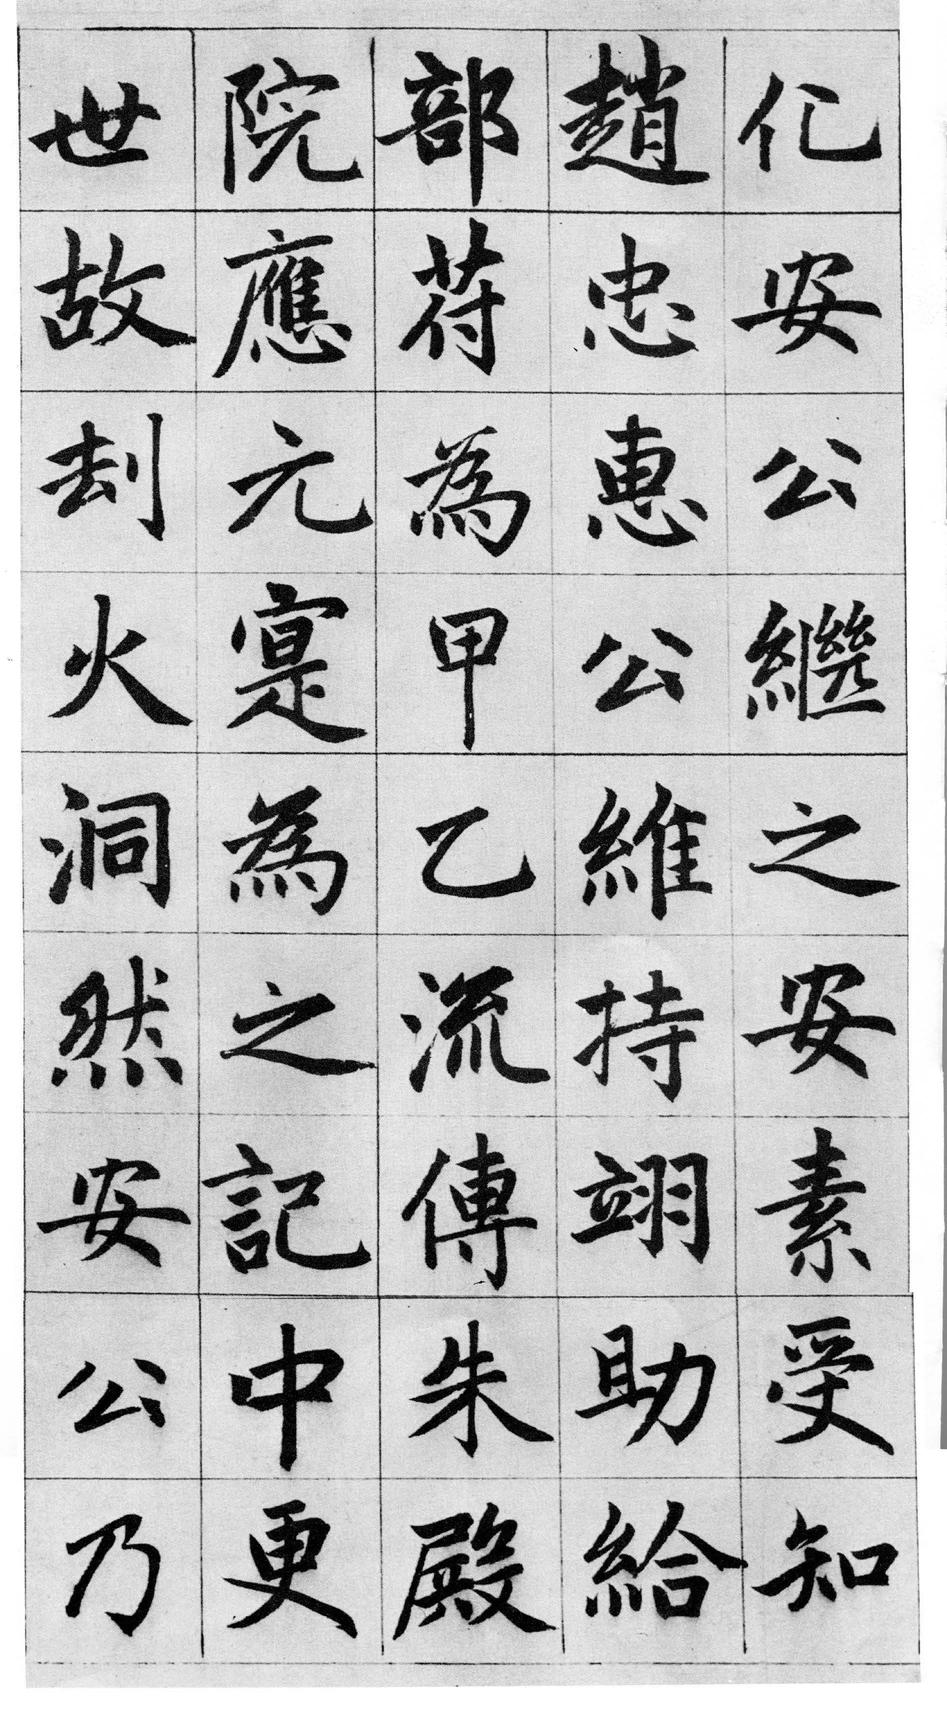 化安公繼之安素受知
趙忠惠公維持翊助給
部苻為甲乙流傳朱殿
院應元寔為之記中更
世故刦火洞然安公乃